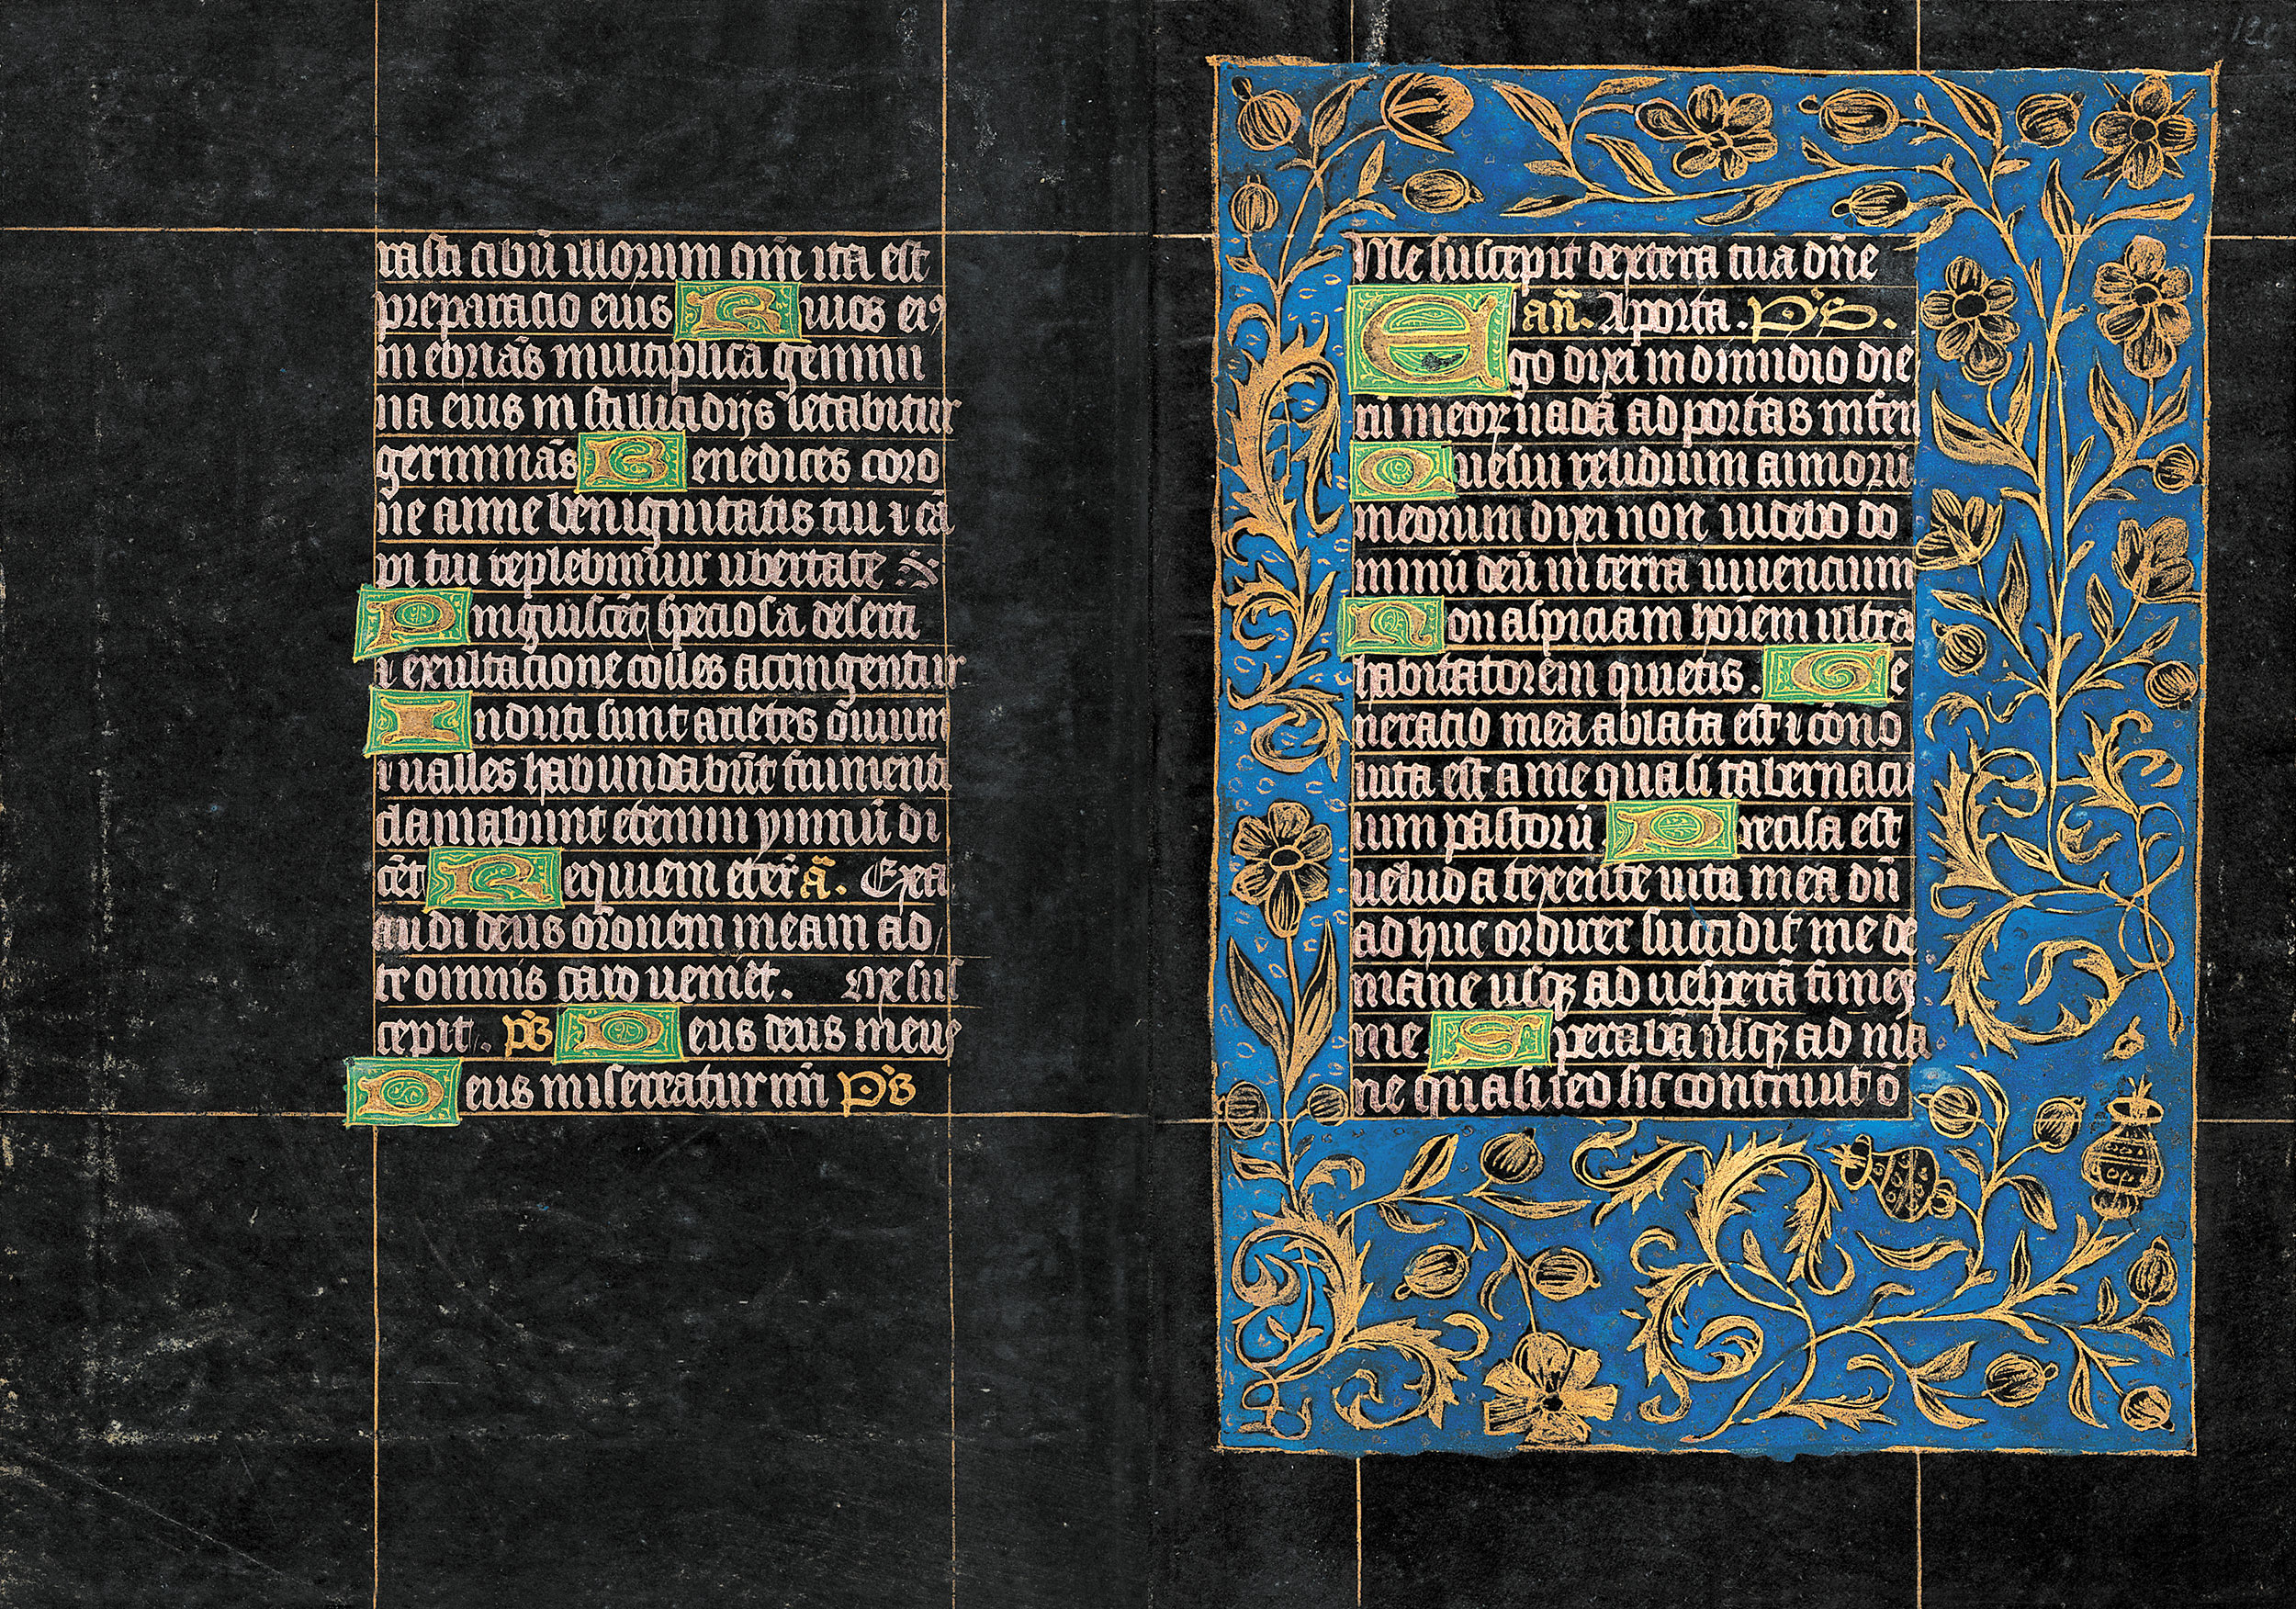 rasti cibū illorum qm̄ ita est
preparacio eius Riuos eiꝰ
inebriās multiplica gemini
na eius in stillicidijs letabitur
germinās Benedices coro
ne anne benignitatis tiu ⁊ cā
pi tui replebuntur ubertate
Pinguiscēt speciosa deserti
⁊ exultacione colles accingentur
Induti sunt arietes ouium
⁊ ualles habundabūt frumento
clamabunt etenim ymnū di
cēt Requiem eter̄ ā. Exa
udi deus or̄onem meam ad
te omnis caro ueniēt. Me sus
cepit. ps̄ Deus deus meus
Deus misereatur nr̄i Ps̄
Me suscepit dextera tua dn̄e
an̄. A porta. Ps̄.
Ego dixi in dimidio die
rū meoꝝ uadā ad portas inferi
Quesiui residuum annorū
meorum dixi non uidebo do
minū deū in terra uiuencium
Non aspiciam hōīem ultra
habitatorem quietis. Ge
neracio mea ablata est ⁊ cōuo
luta est a me quasi tabernacu
lum pastorū Precisa est
uelud a texente uita mea dū
ad huc ordirer succidit me de
mane usqꝫ ad uesperā finies
me Sperabā usqꝫ ad ma
ne quasi leo sic contriuit ō
126